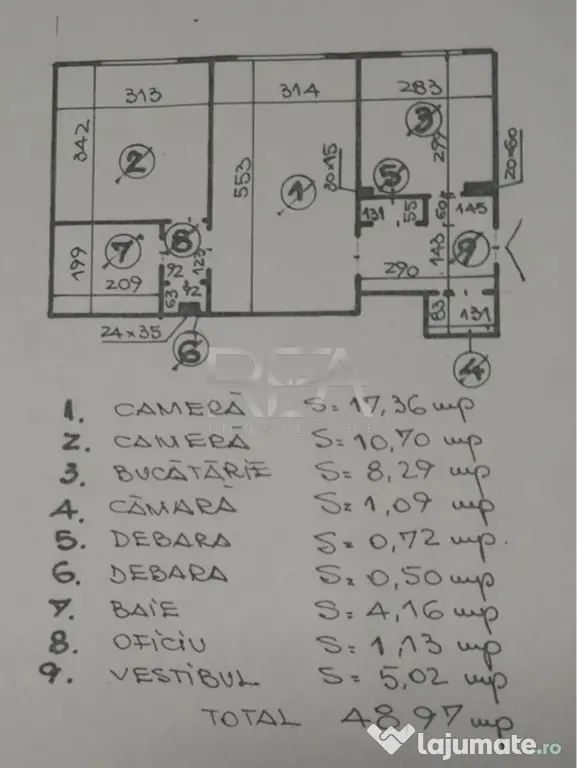 313
314
283
342
2
553
1
3
299
30x15
20x60
5
131
55
60
145
7
8
9
199
209
92
123
143
290
63
42
83
131
24x35
6
4
REA
IMOBILIARE
1. CAMERĂ S= 17,36 mp
2. CAMERĂ S= 10,70 mp
3. BUCĂTĂRIE S= 8,29 mp
4. CĂMARĂ S= 1,09 mp
5. DEBARA S= 0,72 mp
6. DEBARA S= 0,50 mp
7. BAIE S= 4,16 mp
8. OFICIU S= 1,13 mp
9. VESTIBUL S= 5,02 mp
TOTAL 48,97 mp
lajumate.ro